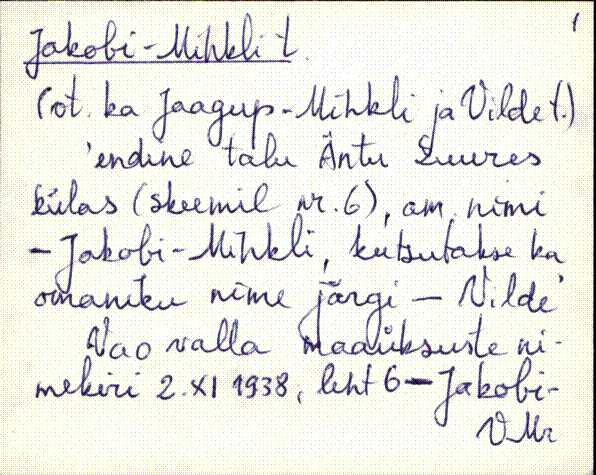 1
Jakobi-Mihkli t.
(vt. ka Jaagup-Mihkli ja Vilde t.)
'endine talu Äntu Suures
külas (skeemil nr. 6), am. nimi
- Jakobi-Mihkli, kutsutakse ka
omaniku nime järgi - Vilde'
Vao valla maaüksuste ni-
mekiri 2.XI 1938, leht 6 - Jakobi-
VMr